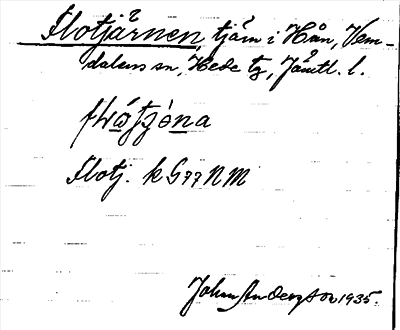 Flotjärnen, tjärn i Hån, Vem-
dalens sn, Hede tg, Jämtl. l.
flωtjóna
Flotj. k G77NM
Johan Anderzson 1935.